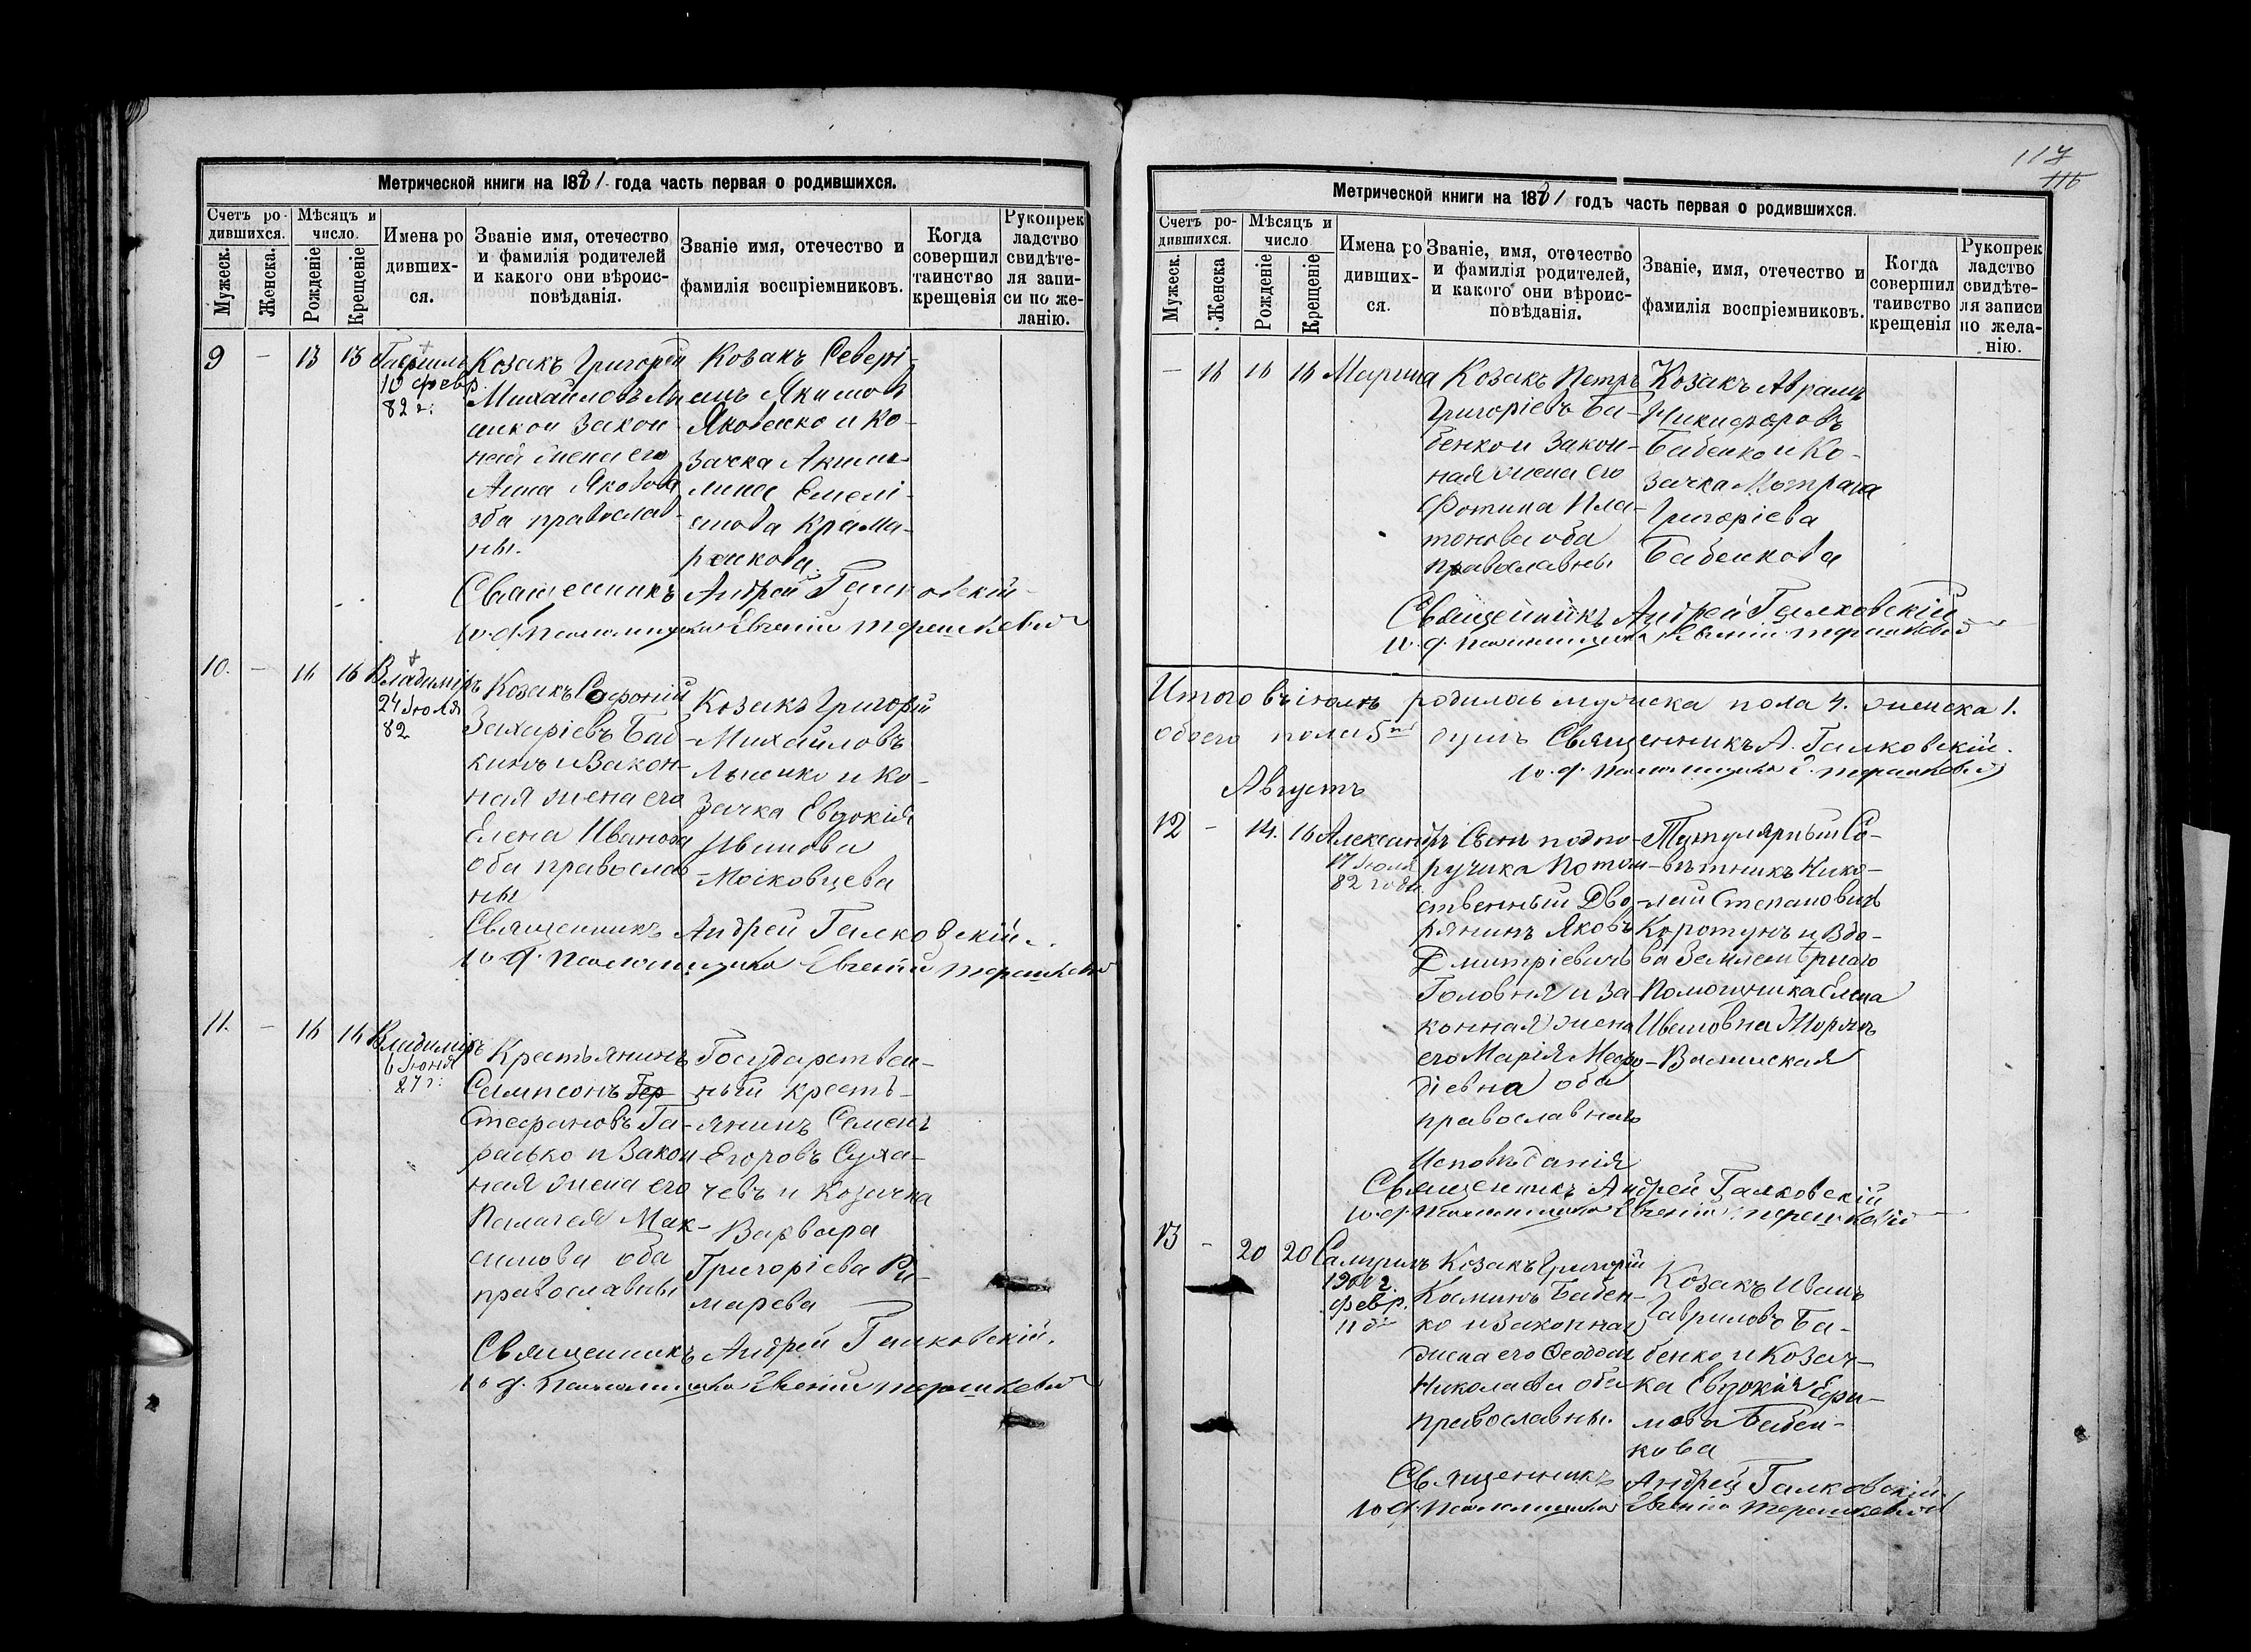 Метрической книги на 1881 года часть первая о родившихся.
Счетъ ро-
дившихся.
Мѣсяцъ и
число.
Мужеск.
Женска.
Рожденіе
Крещеніе
Имена ро
дивших-
ся.
Званіе имя, отечество
и фамилія родителей
и какого они вѣроис-
повѣданія.
Званіе имя, отечество и
фамилія воспріемниковъ.
Когда
совершил
таинство
крещенія
Рукоприк
ладство
свидѣте-
ля запи-
си по же-
ланію.
9 - 13 13 Гавріилъ
10 февр.
82 г.
Козакъ Григорій
Михайловъ Лы
сенко и закон
ная жена его
Анна Яковова
оба православ-
ны.
Козакъ Севері-
анъ Якимовъ
Яковенко и Ко-
зачка Акили-
лина Емелі-
анова Крама-
ренкова.
Священникъ Андрей Галковскій
и. д. псаломщика Евгеній Терешкевич
10. - 16 16 Владиміръ
24 Іюля
82
Козакъ Софоній
Захаріевъ Бай-
кинъ и закон-
ная жена его
Елена Иванова
оба православ
ны
Козакъ Григорій
Михайловъ
Лысенко и Ко-
зачка Евдокія
Иванова
Московцева
Священникъ Андрей Галковскій.
и. д. псаломщика Евгеній Терешкевич
11. - 16 16 Владиміръ
6 Іюня
87 г:
Крестьянинъ
Сампсонъ Гер
Стефановъ Га-
расько и закон
ная жена его
Пелагея Мак-
симова оба
православны
Государствен-
ный кресть-
янинъ Семенъ
Егоровъ Суха-
чевъ и Козачка
Варвара
Григоріева Ри-
марева
Священникъ Андрей Галковскій.
и. д. псаломщика Евгеній Терешкевич
117
116
Метрической книги на 1881 годъ часть первая о родившихся.
Счетъ ро-
дившихся.
Мѣсяцъ и
число
Мужеск.
Женска
Рожденіе
Крещеніе
Имена ро
дивших-
ся.
Званіе, имя, отечество
и фамилія родителей,
и какого они вѣроис-
повѣданія.
Званіе, имя, отечество и
фамилія воспріемниковъ.
Когда
совершил
таивство
крещенія
Рукопрек
ладство
свидѣте-
ля записи
по жела-
нію.
- 16 16 16 Марина
Козакъ Петръ
Григоріевъ Ба-
бенко и закон-
ная жена его
Фотина Пла-
тонова оба
православны
Козакъ Аврамъ
Никифоровъ
Бабенко и Ко-
зачка Мотрона
Григоріева
Бабенкова
Священникъ Андрей Галковскій
и. д. псаломщика Евгеній Терешкевич
Итого въ іюлѣ родилось мужска пола 4. женска 1.
обоего пола 5ть душъ Священникъ А. Галковскій.
и. д. псаломщика Е. Терешкевич
Августъ
12 - 14. 16 Александръ
17 Іюля
82 года
Сынъ подпо-
ручика Потом-
ственный Дво-
рянинъ Яковъ
Дмитріевичъ
Головня и за-
конная жена
его Марія Меѳо-
діевна оба
православнаго
Исповѣданія
Титулярный Со-
вѣтникъ Нико-
лай Степановичъ
Коротунъ и Вдо-
ва Землемѣрнаго
Помощника Елена
Ивановна
Священникъ Андрей Галковскій
и. д. псаломщика Евгеній Терешкевич
13 - 20 20
1902 г.
февр.
Козакъ Григорій
Косминъ Бабен-
ко и законная
жена его Ѳеодосія
Николаева оба
православны.
Козакъ Иванъ
Гавриловъ Ба-
бенко и Козач-
ка Евдокія Ефи-
мова Бабен-
кова
Священникъ Андрей Галковскій
и. д. псаломщика Евгеній Терешкевич